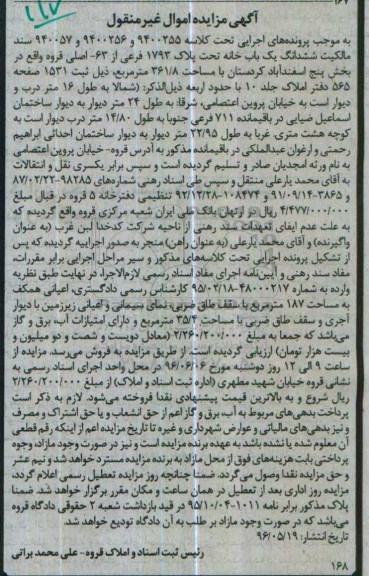 ۱۶۷
آگهی مزایده اموال غیرمنقول
به موجب پرونده‌های اجرایی تحت کلاسه ۹۴۰۰۲۵۵ و ۹۴۰۰۲۵۶ و ۹۴۰۰۵۷ سند
مالکیت ششدانگ یک باب خانه تحت پلاک ۱۷۹۳ فرعی از ۶۳- اصلی قروه واقع در
بخش پنج اسفندآباد کردستان با مساحت ۳۶۱/۸ مترمربع، ذیل ثبت ۱۵۳۱ صفحه
۵۶۵ دفتر املاک جلد ۱۰ با حدود اربعه ذیل‌الذکر: (شمالا به طول ۱۶ متر درب و
دیوار است به خیابان پروین اعتصامی، شرقا: به طول ۲۴ متر دیوار به دیوار ساختمان
اسماعیل ضیایی در باقیمانده ۷۱۱ فرعی جنوبا به طول ۱۴/۸۰ متر درب دیوار است به
کوچه هشت متری. غربا به طول ۲۲/۹۵ متر دیوار به دیوار ساختمان احداثی ابراهیم
رحمتی و ارغوان عبدالملکی در باقیمانده مذکور به آدرس قروه- خیابان پروین اعتصامی
به نام ورثه امجدیان صادر و تسلیم گردیده است و سپس برابر یکسری نقل و انتقالات
به آقای محمد یارعلی منتقل و سپس طی اسناد رهنی شماره‌های ۹۸۲۸۵-۸۷/۰۲/۲۲
و ۳۸۶۵-۹۱/۰۹/۱۴ و ۱۰۸۴۷۴-۹۲/۱۲/۲۸ تنظیمی دفترخانه ۵ قروه در قبال مبلغ
۴/۴۷۷/۰۰۰/۰۰۰ ریال در ارتهان بانک ملی ایران شعبه مرکزی قروه واقع گردیده که
به علت عدم ایفای تعهدات سند رهنی از ناحیه شرکت کدخدا لبن غرب (به عنوان
وام‌گیرنده) و آقای محمد یارعلی (به عنوان راهن) منجر به صدور اجراییه گردیده که پس
از تشکیل پرونده اجرایی تحت کلاسه‌های مذکور و سیر مراحل اجرایی برابر مقررات،
مفاد سند رهنی و آیین‌نامه اجرای مفاد اسناد رسمی لازم‌الاجرا، در نهایت طبق نظریه
وارده به شماره ۴۸۰۰۰۲۱۷-۹۵/۰۲/۱۸ کارشناس رسمی دادگستری، اعیانی همکف
به مساحت ۱۸۷ مترمربع با سقف طاق ضربی، نمای سیمانی و اعیانی زیرزمین با دیوار
آجری و سقف طاق ضربی با مساحت ۳۵/۴ مترمربع و دارای امتیازات آب، برق و گاز
می‌باشد که جمعا به مبلغ ۲/۲۶۰/۲۰۰/۰۰۰ (معادل دویست و شصت و دو میلیون و
بیست هزار تومان) ارزیابی گردیده است. از طریق مزایده به فروش می‌رسد. مزایده از
ساعت ۹ الی ۱۲ روز دوشنبه مورخ ۹۶/۰۶/۰۶ در محل واحد اجرای اسناد رسمی به
نشانی قروه خیابان شهید مطهری (اداره ثبت اسناد و املاک) از مبلغ ۲/۲۶۰/۲۰۰/۰۰۰
ریال شروع و به بالاترین قیمت پیشنهادی نقدا فروخته می‌شود. لازم به ذکر است
پرداخت بدهی‌های مربوط به آب، برق و گاز اعم از حق انشعاب و یا حق اشتراک و مصرف
و نیز بدهی‌های مالیاتی و عوارض شهرداری و غیره تا تاریخ مزایده اعم از اینکه رقم قطعی
آن معلوم شده یا نشده باشد به عهده برنده مزایده است و نیز در صورت وجود مازاد، وجوه
پرداختی بابت هزینه‌های فوق از محل مازاد به برنده مزایده مسترد خواهد شد و نیم عشر
و حق مزایده نقدا وصول می‌گردد. ضمنا چنانچه روز مزایده تعطیل رسمی اعلام گردد،
مزایده روز اداری بعد از تعطیل در همان ساعت و مکان مقرر برگزار خواهد شد. ضمنا
پلاک مذکور برابر نامه ۱۰۱۱-۹۵/۱۰/۰۴ در قید بازداشت شعبه ۲ حقوقی دادگاه قروه
می‌باشد که در صورت وجود مازاد بر طلب به آن دادگاه تودیع خواهد شد.
تاریخ انتشار: ۹۶/۰۵/۱۹
رئیس ثبت اسناد و املاک قروه- علی محمد براتی
۱۶۸